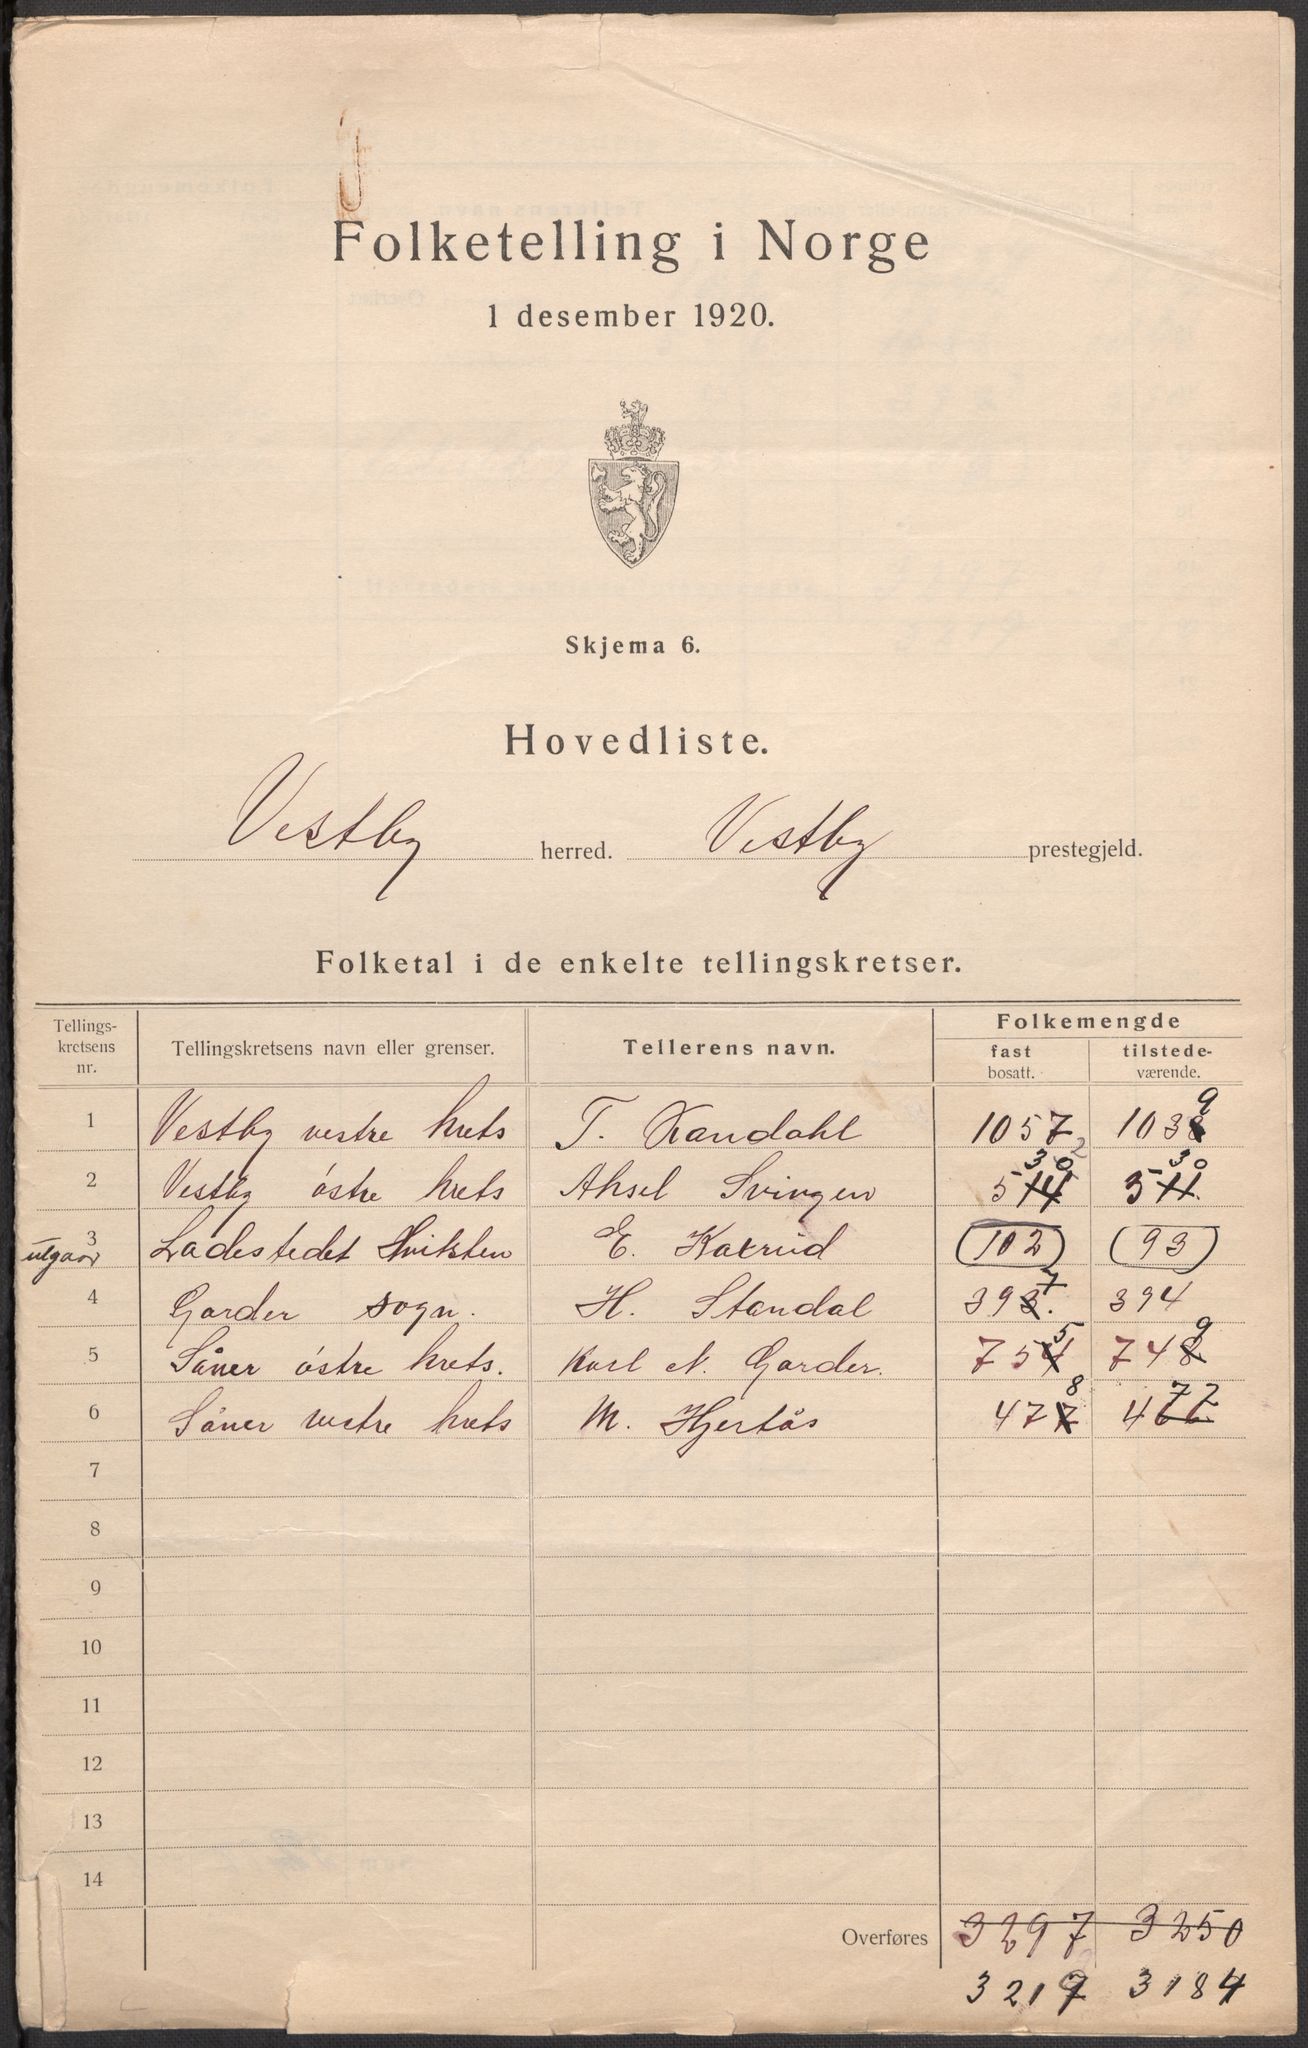 Folketelling i Norge
1 desember 1920.
Skjema 6.
Hovedliste.
Vestby herred. Vestby prestegjeld.
Folketal i de enkelte tellingskretser.
Tellings-kretsens nr. Tellingskretsens navn eller grenser. Tellerens navn. Folkemengde
fast bosatt. tilstede-værende.
1 Vestby vestre krets T. Kandahl 1057 1038 9
2 Vestby østre krets Aksel Svingen 514 30 2 511 30
utgaar 3 Ladestedet Hvitsten E. Kaxrud (102) (93)
4 Garder sogn. H. Standal 393 7 394
5 Såner østre krets. Karl N. Garder. 754 5 748 9
6 Såner vestre krets M. Hjertås 477 8 466 77
7
8
9
10
11
12
13
14
Overføres 3297 3250
3217 3184